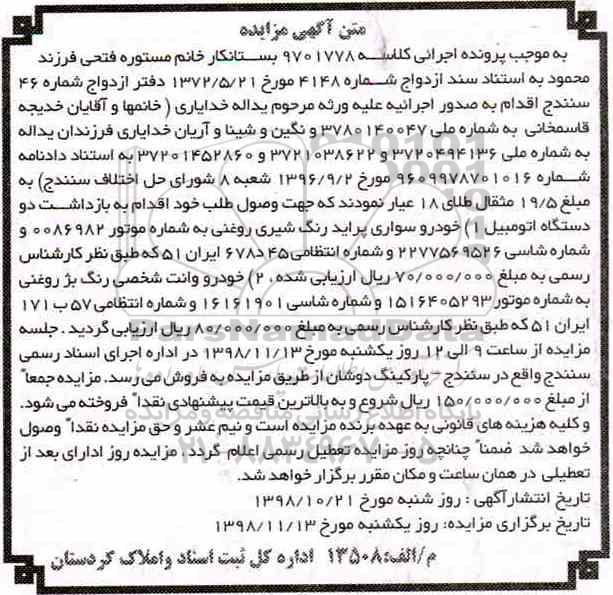 متن آگهی مزایده
به موجب پرونده اجرائی کلاسه ۹۷۰۱۷۷۸ بستانکار خانم مستوره فتحی فرزند
محمود به استناد سند ازدواج شماره ۴۱۴۸ مورخ ۱۳۷۲/۵/۲۱ دفتر ازدواج شماره ۴۶
سنندج اقدام به صدور اجرائیه علیه ورثه مرحوم یداله خدایاری ( خانمها و آقایان خدیجه
قاسمخانی به شماره ملی ۳۷۸۰۱۴۰۰۴۷ و نگین و شینا و آریان خدایاری فرزندان یداله
به شماره ملی ۳۷۲۰۴۹۴۱۳۶ و ۳۷۲۱۰۳۸۶۲۲ و ۳۷۲۰۱۴۵۲۸۶۰ به استناد دادنامه
شماره ۹۶۰۹۹۷۸۷۰۱۰۱۶ مورخ ۱۳۹۶/۹/۲ شعبه ۸ شورای حل اختلاف سنندج) به
مبلغ ۱۹/۵ مثقال طلای ۱۸ عیار نمودند که جهت وصول طلب خود اقدام به بازداشت دو
دستگاه اتومبیل ۱) خودرو سواری پراید رنگ شیری روغنی به شماره موتور ۰۰۸۶۹۸۲ و
شماره شاسی ۲۲۷۷۵۶۹۵۲۶ و شماره انتظامی ۴۵ د ۶۷۸ ایران ۵۱ که طبق نظر کارشناس
رسمی به مبلغ ۷۰/۰۰۰/۰۰۰ ریال ارزیابی شده , ۲) خودرو وانت شخصی رنگ بژ روغنی
به شماره موتور ۱۵۱۶۴۰۵۲۹۳ و شماره شاسی ۱۶۱۶۱۹۰۱ و شماره انتظامی ۵۷ ب ۱۷۱
ایران ۵۱ که طبق نظر کارشناس رسمی به مبلغ ۸۰/۰۰۰/۰۰۰ ریال ارزیابی گردید . جلسه
مزایده از ساعت ۹ الی ۱۲ روز یکشنبه مورخ ۱۳۹۸/۱۱/۱۳ در اداره اجرای اسناد رسمی
سنندج واقع در سنندج - پارکینگ دوشان از طریق مزایده به فروش می رسد. مزایده جمعاً
از مبلغ ۱۵۰/۰۰۰/۰۰۰ ریال شروع و به بالاترین قیمت پیشنهادی نقداً فروخته می شود.
و کلیه هزینه های قانونی به عهده برنده مزایده است و نیم عشر و حق مزایده نقداً وصول
خواهد شد ضمناً چنانچه روز مزایده تعطیل رسمی اعلام گردد . مزایده روز ادارای بعد از
تعطیلی در همان ساعت و مکان مقرر برگزار خواهد شد.
تاریخ انتشار آگهی : روز شنبه مورخ ۱۳۹۸/۱۰/۲۱
تاریخ برگزاری مزایده: روز یکشنبه مورخ ۱۳۹۸/۱۱/۱۳
م/الف:۱۳۵۰۸ اداره کل ثبت اسناد واملاک کردستان
ParsNamadData
پایگاه اطلاع رسانی مناقصه و مزایده
۰۲۱-۸۸۳۴۹۶۷۰-۵